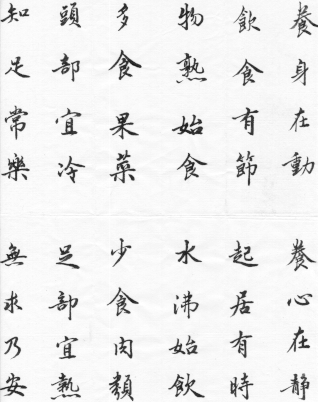 養身在動 養心在静
飲食有節 起居有時
物熟始食 水沸始飲
多食果菜 少食肉類
頭部宜冷 足部宜熱
知足常樂 無求乃安